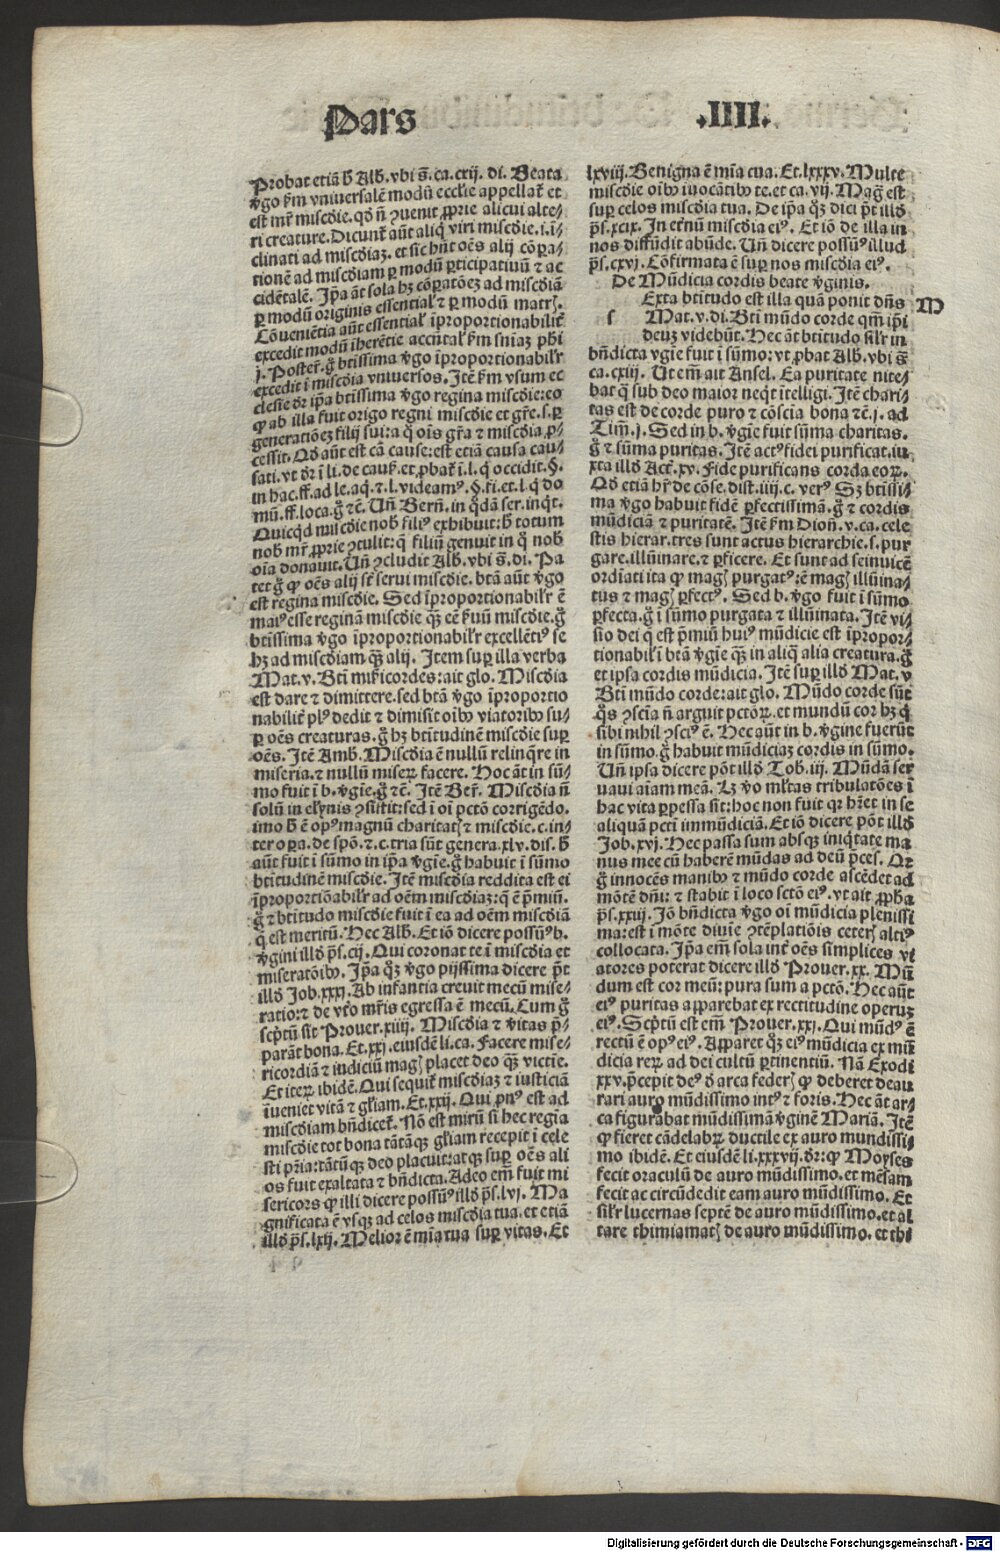 Pars .IIII.
Probat etiā h̄ Alb̄. vbi s̄. ca. cxij. di. Beata
v̄go ẜm vniuersalē modū eccl̄ie appellat᷑ et
est mr̄ miscd̄ie. qd̄ n̄ ꝯuenit ꝓprie alicui alte⸗
ri creature. Dicunt᷑ aūt aliq̇ viri miscd̄ie. i. ī⸗
clinati ad miscd̄iaꝫ. et sic hn̄t oēs alij cōpa⸗
tionē ad miscd̄iam ꝑ modū ꝑticipatiuū ⁊ ac
cidētalē. Ip̄a āt sola hꝫ cōꝑatōeꝫ ad miscd̄iā
ꝑ modū originis essential᷑ ⁊ ꝑ modū matrꝭ.
Cōueniētia aūt essential᷑ īproportionabilit᷑
excedit modū īherētie accn̄tal᷑ ẜm sniaꝫ ph̄i
j. Poster̄. g̊ btīssima v̄go īproportionabilr̄
excedit ī miscd̄ia vniuersos. Itē ẜm vsum ec
clesie dr̄ ip̄a btīssima v̄go regina miscd̄ie: eo
ꝙ ab illa fuit origo regni miscd̄ie et gr̄e. s. ꝑ
generatiōeꝫ filij sui: a q̊ oīs gr̄a ⁊ miscd̄ia ꝓ⸗
cessit. Qd̄ aūt est cā cause: est etiā causa cau⸗
sati. vt dr̄ ī li. de caus̄. et ꝓbat᷑ ī. l. q̇ occidit. §.
in hac. ff. ad le. aq̇. ⁊ l. videamꝰ. §. fi. et. l. q̇ do
mū. ff. loca. g̊ ⁊c̄. Uñ Bern̄. in q̇dā ser. inq̇t.
Quicq̇d miscd̄ie nob̄ filiꝰ exhibuit: h̄ totum
nob̄ mr̄ ꝓprie ꝯtulit: q̄ filiū genuit in q̊ nob̄
oīa donauit. Uñ ꝯcludit Alb̄. vbi s̄. di. Pa
tet g̊ ꝙ oēs alij sūt serui miscd̄ie. btā aūt v̄go
est regina miscd̄ie. Sed īproportionabilr̄ ē
maiꝰ esse reginā miscd̄ie qꝫ eē ẜuū miscd̄ie. g̊
btīssima v̄go īproportionabilr̄ excellētiꝰ se
hꝫ ad miscd̄iam qꝫ alij. Item suꝑ illa verba
Mat. v. Bt̄i mīẜicordes: ait glo. Miscd̄ia
est dare ⁊ dimittere. sed btā v̄go īproportio
nabilit᷑ plꝰ dedit ⁊ dimisit oībꝰ viatoribꝰ su⸗
ꝑ oēs creaturas. g̊ hꝫ btītudinē miscd̄ie suꝑ
oēs. Itē Amb̄. Miscd̄ia ē nullū relinq̄re in
miseria. ⁊ nullū miseꝝ facere. Hoc āt in sū⸗
mo fuit ī b. v̄gīe. g̊ ⁊c̄. Itē Ber̄. Miscd̄ia n̄
solū in elynis ꝯsistit: sed ī oī pctō corrigēdo.
imo h̄ ē opꝰ magnū charitatꝭ ⁊ miscd̄ie. c. in⸗
ter oꝑa. de spō. ⁊. c. tria sūt genera. xlv. dis. h̄
aūt fuit ī sūmo in ip̄a v̄gīe. g̊ habuit ī sūmo
btītudinē miscd̄ie. Itē miscd̄ia reddita est ei
īproportionabilr̄ ad oēm miscd̄iaꝫ: q̄ ē p̄miū.
g̊ ⁊ btītudo miscd̄ie fuit ī ea ad oēm miscd̄iā
q̄ est meritū. Hec Alb̄. Et iō dicere possūꝰ b.
v̄gini illd̄ ps̄. cij. Qui coronat te ī miscd̄ia et
miseratōibꝰ. Ip̄a qꝫ v̄go pijssima dicere pōt
illd̄ Job. xxxj. Ab infantia creuit mecū mise⸗
ratio: ⁊ de vt̄o mr̄is egressa ē mecū. Cum g̊
scp̄tū sit Prouer. xiiij. Miscd̄ia ⁊ v̄itas p̄⸗
parāt bona. Et. xxj. eiusdē li. ca. Facere mise⸗
ricordiā ⁊ iudiciū magꝭ placet deo qꝫ victīe.
Et iteꝝ ibidē. Qui sequit᷑ miscd̄iaꝫ ⁊ iusticiā
īueniet vitā ⁊ gl̄iam. Et. xxij. Qui ꝓnꝰ est ad
miscd̄iam bn̄dicet᷑. Nō est mirū si hec regīa
miscd̄ie tot bona tātāqꝫ gl̄iam recepit ī cele
sti pr̄ia: tātūqꝫ deo placuit: atqꝫ suꝑ oēs ali
os fuit exaltata ⁊ bn̄dicta. Adeo em̄ fuit mi
sericors ꝙ illi dicere possūꝰ illd̄ ps̄. lvj. Ma
gnificata ē vsqꝫ ad celos miscd̄ia tua. et etiā
illd̄ ps̄. lxij. Melior ē mīa tua suꝑ vitas. Et
lxviij. Benigna ē mīa tua. Et. lxxxv. Multe
miscd̄ie oībꝰ īuocātibꝰ te. et ca. vij. Maḡ est
suꝑ celos miscd̄ia tua. De ip̄a qꝫ dici pōt illd̄
ps̄. xcix. In et̄nū miscd̄ia eiꝰ. Et iō de illa in
nos diffūdit abūde. Uñ dicere possūꝰ illud
ps̄. cxvj. Cōfirmata ē suꝑ nos miscd̄ia eiꝰ.
De Mūdicia cordis beate v̄ginis.
Exta btītudo est illa quā ponit dn̄s M
s Mat. v. di. Bt̄i mūdo corde qm̄ ip̄i
deuꝫ videbūt. Hec āt btītudo silr̄ in
bn̄dicta v̄gīe fuit ī sūmo: vt ꝓbat Alb̄. vbi s̄
ca. cxiij. Ut em̄ ait Ansel. Ea puritate nite⸗
bat q̄ sub deo maior neq̄t ītelligi. Itē chari⸗
tas est de corde puro ⁊ cōscia bona ⁊c̄. j. ad
Tim̄. j. Sed in b. v̄gīe fuit sūma charitas.
g̊ ⁊ sūma puritas. Itē actꝰ fidei purificat. iu
xta illd̄ Act̄. xv. Fide purificans corda eoꝝ.
Qd̄ etiā hr̄ de cōse. dist. iiij. c. verꝰ Sꝫ btīssi⸗
ma v̄go habuit fidē ꝑfectissimā. g̊ ⁊ cordis
mūdiciā ⁊ puritatē. Itē ẜm Dion̄. v. ca. cele
stis hierar. tres sunt actus hierarchie. s. pur
gare. illūinare. ⁊ ꝑficere. Et sunt ad seinuicē
ordiati ita ꝙ magꝭ purgatꝰ: ē magꝭ illūina⸗
tus ⁊ magꝭ ꝑfectꝰ. Sed b. v̄go fuit ī sūmo
ꝑfecta. g̊ ī sūmo purgata ⁊ illūinata. Itē vi⸗
sio dei q̄ est p̄miū huiꝰ mūdicie est īpropor⸗
tionabilī btā v̄gīe qꝫ in aliq̄ alia creatura. g̊
et ipsa cordis mūdicia. Itē suꝑ illd̄ Mat. v
Bt̄i mūdo corde: ait glo. Mūdo corde sūt
q̊s ꝯscīa n̄ arguit pctōꝝ. et mundū cor hꝫ q̇
sibi nihil ꝯsciꝰ ē. Hec aūt in b. v̄gine fuerūt
in sūmo. g̊ habuit mūdiciaꝫ cordis in sūmo.
Uñ ipsa dicere pōt illd̄ Tob. iij. Mūdā ser
uaui aīam meā. Lꝫ v̄o ml̄tas tribulatōes ī
hac vita ꝑpessa sit: hoc non fuit qr hr̄et in se
aliquā pctī immūdiciā. Et iō dicere pōt illd̄
Job. xvj. Hec passa sum absqꝫ iniq̇tate ma
nus mee cū haberē mūdas ad deū p̄ces. Qr
g̊ innocēs manibꝰ ⁊ mūdo corde ascēdet ad
mōtē dn̄i: ⁊ stabit ī loco sctō eiꝰ. vt ait ꝓph̄a
ps̄. xxiij. Jō bn̄dicta v̄go oī mūdicia plenissi
ma: est ī mōte diuīe ꝯtēplatiōis ceterꝭ altiꝰ
collocata. Ip̄a em̄ sola int̄ oēs simplices vi
atores poterat dicere illd̄ Prouer. xx. Mū
dum est cor meū: pura sum a pctō. Hec aūt
eiꝰ puritas apparebat ex rectitudine operuꝫ
eiꝰ. Scp̄tū est em̄ Prouer. xxj. Qui mūdꝰ ē
rectū ē opꝰ eiꝰ. Apparet qꝫ eiꝰ mūdicia ex mū
dicia reꝝ ad dei cultū ꝑtinentiū. Nā Exodi
xxv. p̄cepit deꝰ d̄ arca federꝭ ꝙ deberet deau
rari auro mūdissimo intꝰ ⁊ foris. Hec āt ar⸗
ca figurabat mūdissimā v̄ginē Mariā. Itē
ꝙ fieret cādelabꝝ ductile ex auro mundissi⸗
mo ibidē. Et eiusdē li. xxxvij. dr̄: ꝙ Moyses
fecit oraculū de auro mūdissimo. et mēsam
fecit ac circūdedit eam auro mūdissimo. Et
silr̄ lucernas septē de auro mūdissimo. et al
tare thimiamatꝭ de auro mūdissimo. et thi
Digitalisierung gefördert durch die Deutsche Forschungsgemeinschaft - DFG